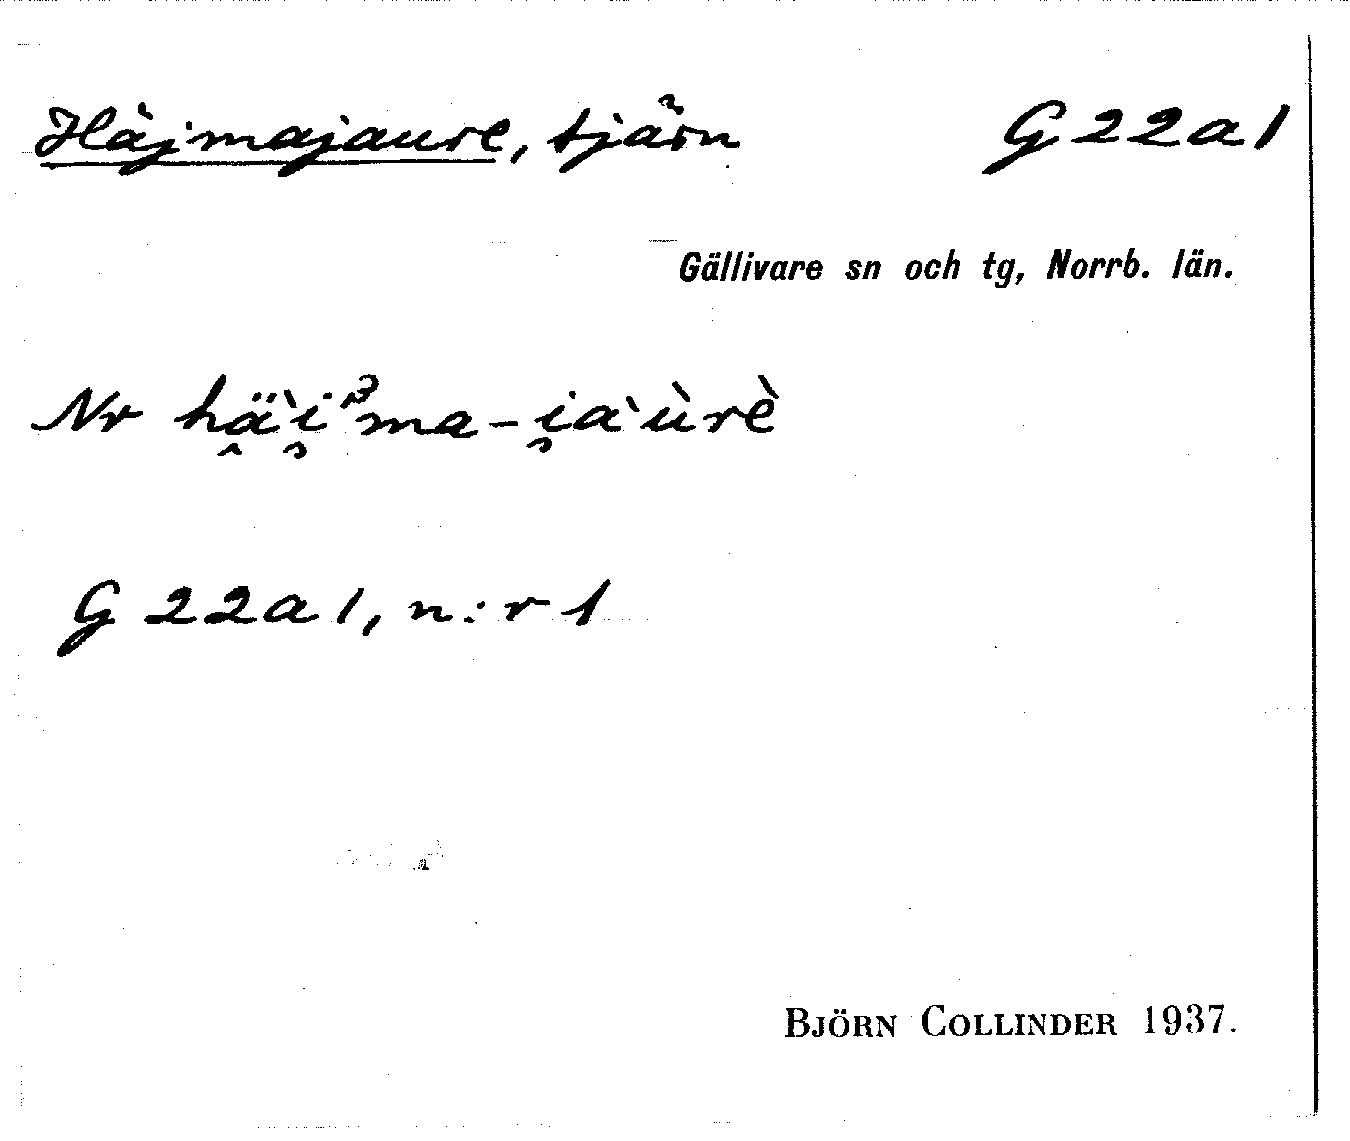 Hàjmajaure, tjärn G22a1
Gällivare sn och tg, Norrb. län.
Nr
G 22a1, n:r 1
BJÖRN COLLINDER 1937.